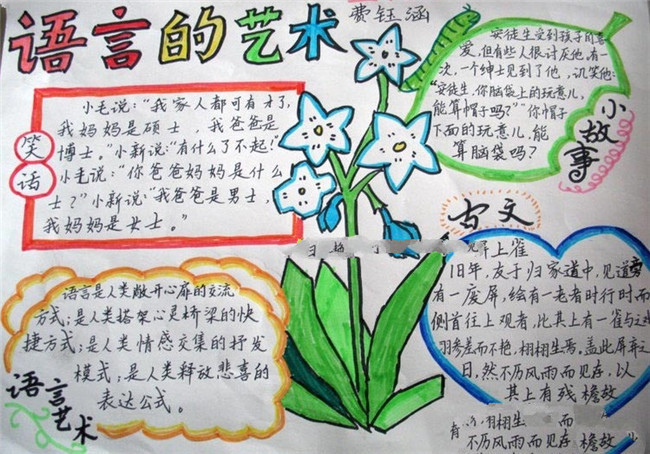 语言的艺术
费钰涵
笑话
小毛说:“我家人都可有才了,
我妈妈是硕士,我爸爸是
博士。”小新说:“有什么了不起!”
小毛说:“你爸爸妈妈是什么
士?”小新说:“我爸爸是男士,
我妈妈是女士。”
安徒生受到孩子们喜
爱,但有些人很讨厌他,有
一次,一个绅士见到了他,讥笑他:
“安徒生,你脑袋上的玩意儿,
能算帽子吗?”“你帽子
下面的玩意儿,能
算脑袋吗?
小故事
古文
屏上雀
旧年,友于归家道中,见道旁
有一废屏,绘有一老者时行时而
侧首往上观者,比其上有一雀与之
羽参差而不艳,栩栩生焉,盖此屏弃之
日,然不历风雨而见存,以
其上有残檐故
栩生 而
不历风雨而见存 檐故
语言是人类敞开心扉的交流
方式;是人类搭架心灵桥梁的快
捷方式;是人类情感交集的抒发
模式;是人类释放悲喜的
表达公式。
语言艺术